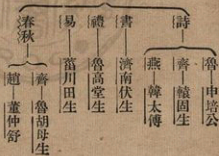 詩
魯 申培公
齊 轅固生
燕 韓太傅
書 濟南伏生
禮 魯高堂生
易 菑川田生
春秋
齊 魯胡母生
趙 董仲舒